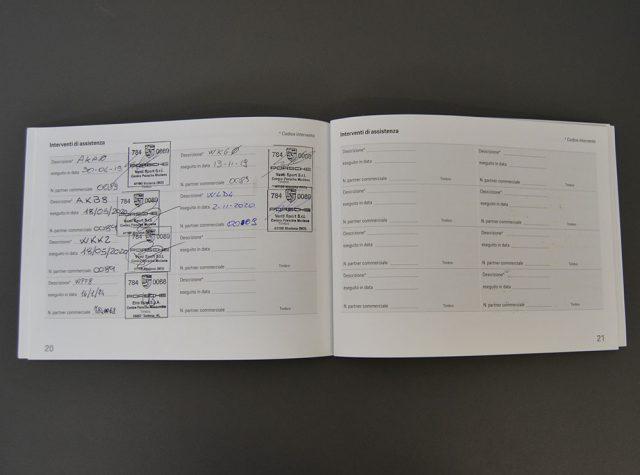 Interventi di assistenza
* Codice intervento
Descrizione* AKAØ
eseguito in data 30-04-19
N. partner commerciale 0089
784 0089
PORSCHE
Centro Porsche Modena
Descrizione* WKGØ
eseguito in data 13-11-19
N. partner commerciale 0089
784 0089
PORSCHE
Vanti Sport S.r.l.
Centro Porsche Modena
Timbro
Descrizione* AKB8
eseguito in data 18/05/2020
N. partner commerciale 0089
784 0089
PORSCHE
Centro Porsche Modena
Descrizione* WLD4
eseguito in data 2-11-2020
N. partner commerciale 00089
784 0089
PORSCHE
Centro Porsche Modena
41100 Modena (MO)
Timbro
Descrizione* WKK2
eseguito in data 18/05/2020
N. partner commerciale 0089
784 0089
PORSCHE
Centro Porsche Modena
Descrizione*
eseguito in data
N. partner commerciale
Timbro
Descrizione*
eseguito in data
N. partner commerciale
784 0068
PORSCHE
Descrizione*
eseguito in data
N. partner commerciale
Timbro
20
Interventi di assistenza
* Codice intervento
Descrizione*
eseguito in data
N. partner commerciale
Timbro
Descrizione*
eseguito in data
N. partner commerciale
Timbro
Descrizione*
eseguito in data
N. partner commerciale
Timbro
Descrizione*
eseguito in data
N. partner commerciale
Timbro
Descrizione*
eseguito in data
N. partner commerciale
Timbro
Descrizione*
eseguito in data
N. partner commerciale
Timbro
Descrizione*
eseguito in data
N. partner commerciale
Timbro
Descrizione*
eseguito in data
N. partner commerciale
Timbro
21